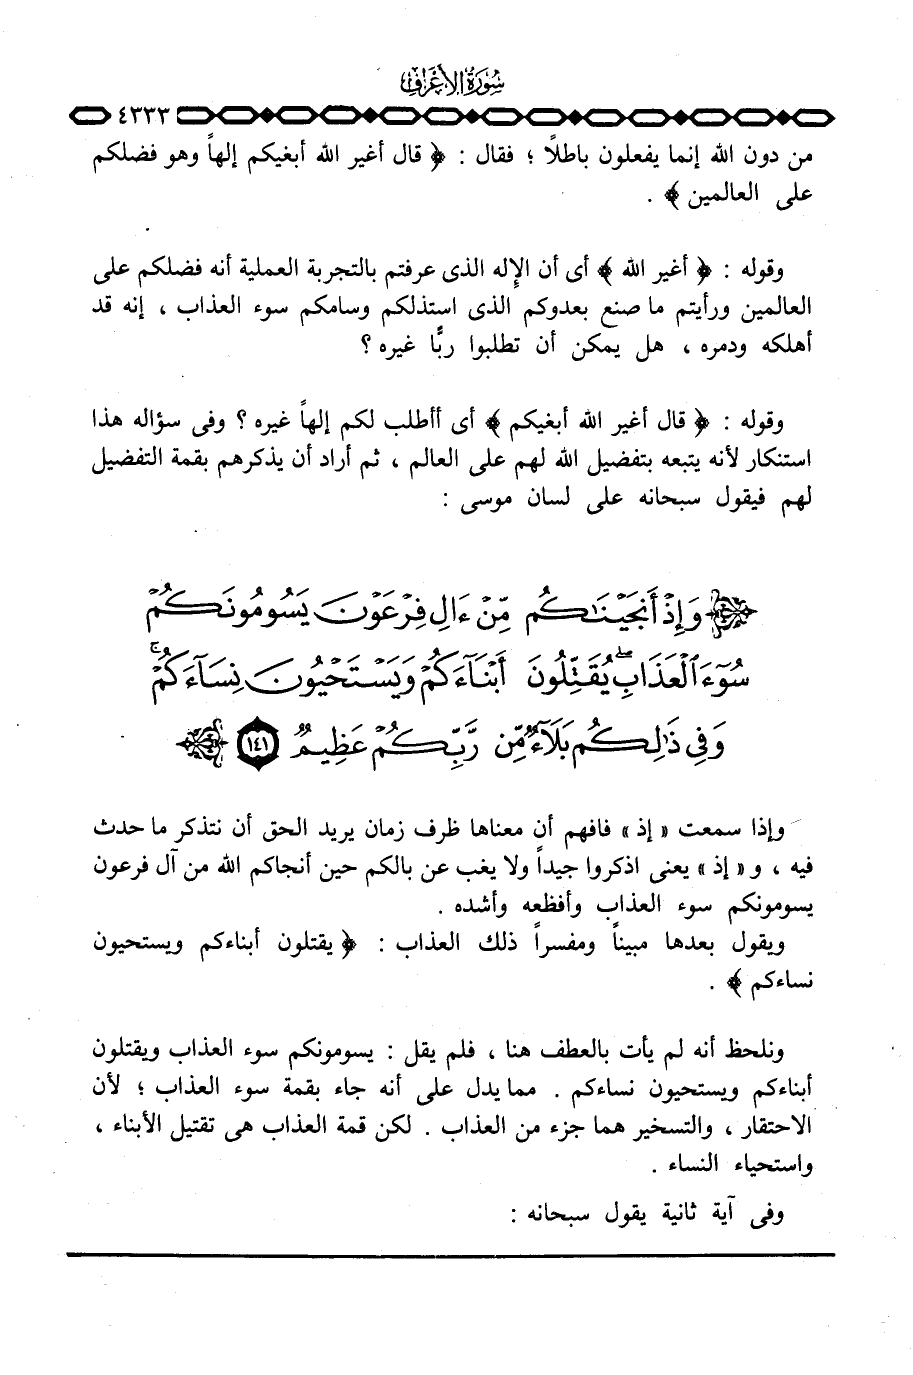 سورة الأعراف
٤٣٣٣
من دون الله إنما يفعلون باطلًا ؛ فقال : ﴿ قال أغير الله أبغيكم إلهاً وهو فضلكم
على العالمين ﴾ .
وقوله : ﴿ أغير الله ﴾ أى أن الإله الذى عرفتم بالتجربة العملية أنه فضلكم على
العالمين ورأيتم ما صنع بعدوكم الذى استذلكم وسامكم سوء العذاب ، إنه قد
أهلكه ودمره ، هل يمكن أن تطلبوا ربًّا غيره ؟
وقوله : ﴿ قال أغير الله أبغيكم ﴾ أى أأطلب لكم إلهاً غيره ؟ وفى سؤاله هذا
استنكار لأنه يتبعه بتفضيل الله لهم على العالم ، ثم أراد أن يذكرهم بقمة التفضيل
لهم فيقول سبحانه على لسان موسى :
وَإِذْ أَنجَيْنَاكُم مِّنْ ءَالِ فِرْعَوْنَ يَسُومُونَكُمْ
سُوٓءَ ٱلْعَذَابِ ۖ يُقَتِّلُونَ أَبْنَآءَكُمْ وَيَسْتَحْيُونَ نِسَآءَكُمْ ۚ
وَفِى ذَٰلِكُم بَلَآءٌ مِّن رَّبِّكُمْ عَظِيمٌ ١٤١
وإذا سمعت « إذ » فافهم أن معناها ظرف زمان يريد الحق أن نتذكر ما حدث
فيه ، و « إذ » يعنى اذكروا جيداً ولا يغب عن بالكم حين أنجاكم الله من آل فرعون
يسومونكم سوء العذاب وأفظعه وأشده .
ويقول بعدها مبيناً ومفسراً ذلك العذاب : ﴿ يقتلون أبناءكم ويستحيون
نساءكم ﴾ .
ونلحظ أنه لم يأت بالعطف هنا ، فلم يقل : يسومونكم سوء العذاب ويقتلون
أبناءكم ويستحيون نساءكم . مما يدل على أنه جاء بقمة سوء العذاب ؛ لأن
الاحتقار ، والتسخير هما جزء من العذاب . لكن قمة العذاب هى تقتيل الأبناء ،
واستحياء النساء .
وفى آية ثانية يقول سبحانه :